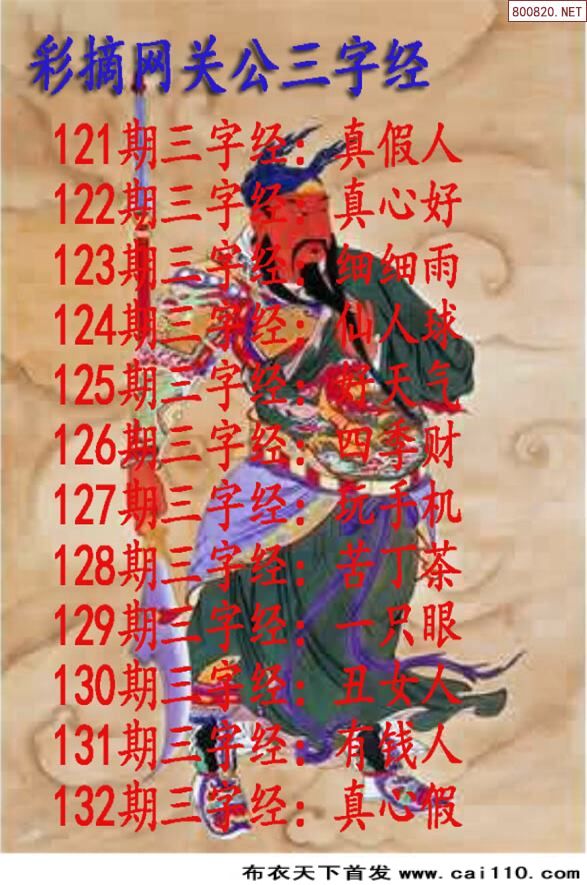 800820.NET
彩摘网关公三字经
121期三字经：真假人
122期三字经：真心好
123期三字经：细细雨
124期三字经：仙人球
125期三字经：好天气
126期三字经：四季财
127期三字经：玩手机
128期三字经：苦丁茶
129期三字经：一只眼
130期三字经：丑女人
131期三字经：有钱人
132期三字经：真心假
布衣天下首发 www.cai110.com